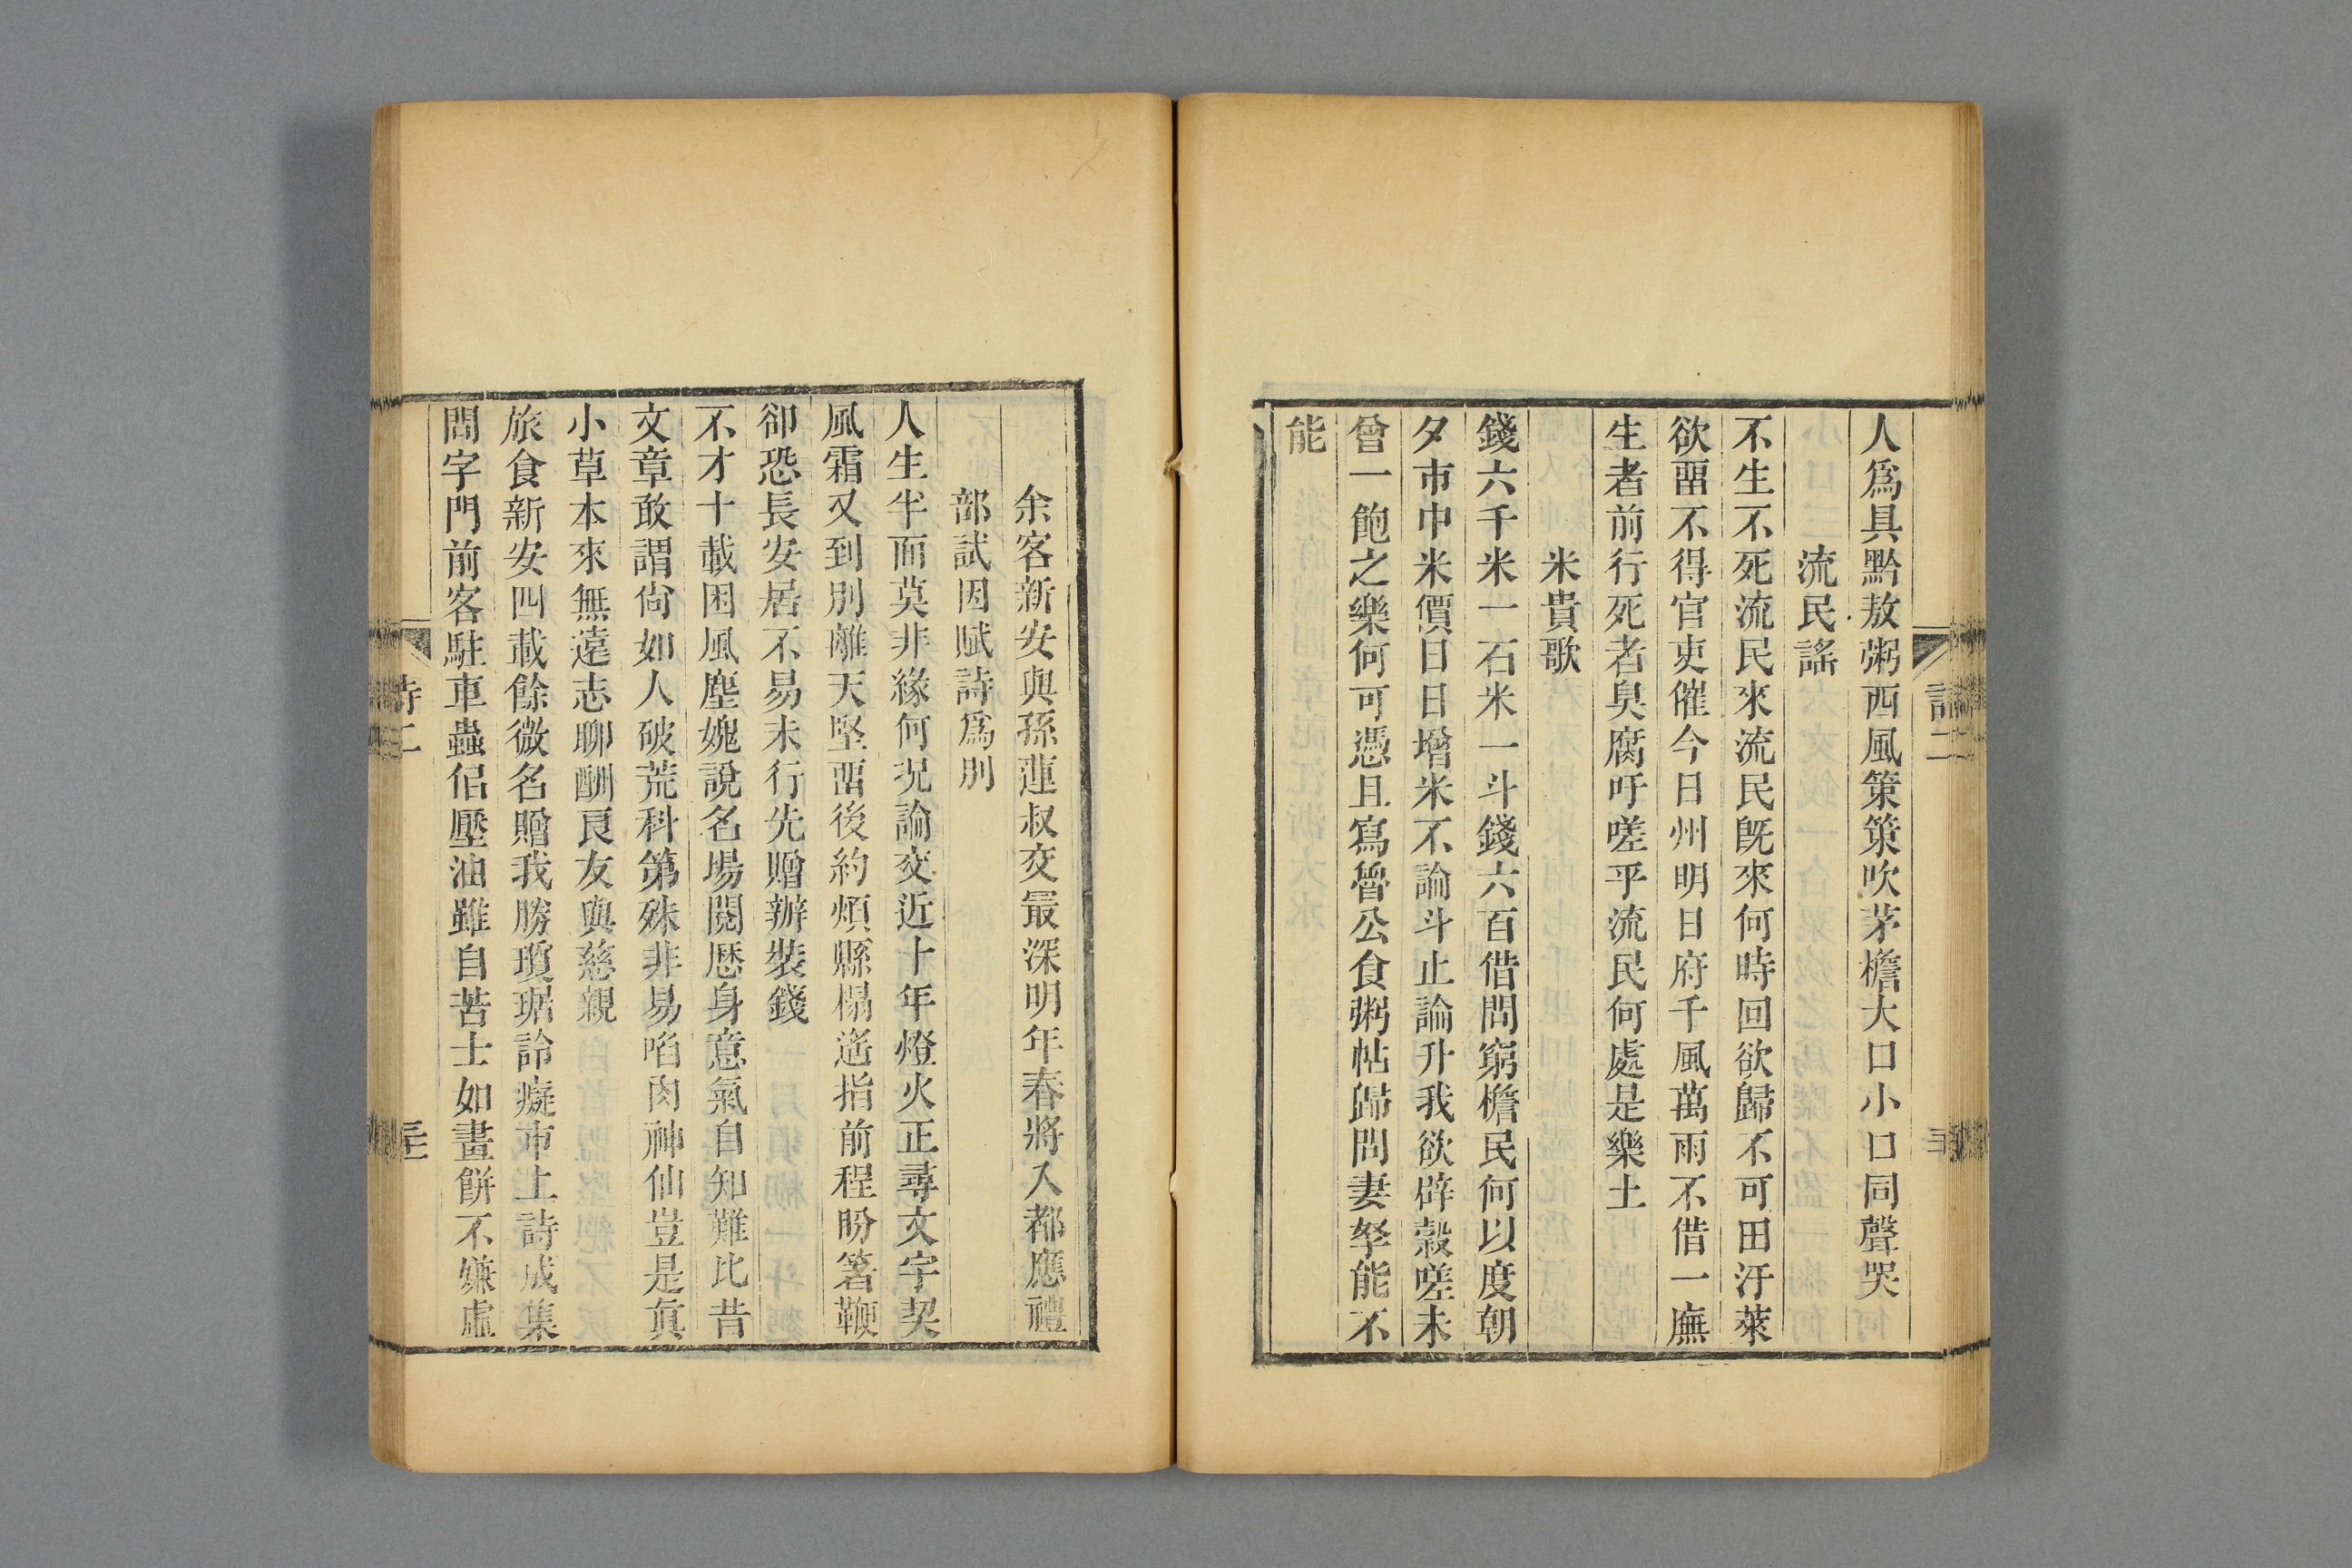 人爲具黔敖粥西風策策吹茅檐大口小口同聲哭
流民謠
不生不死流民來流民旣來何時回欲歸不可田汙萊
欲畱不得官吏催今日州明日府千風萬雨不借一廡
生者前行死者臭腐吁嗟乎流民何處是樂土
米貴歌
錢六千米一石米一斗錢六百借問窮檐民何以度朝
夕市中米價日日增米不論斗止論升我欲辟穀嗟未
曾一飽之樂何可憑且寫魯公食粥帖歸問妻孥能不
能
余客新安與孫蓮叔交最深明年春將入都應禮
部試因賦詩爲別
人生半面莫非緣何況論交近十年燈火正尋文字契
風霜又到別離天堅畱後約煩縣榻遙指前程盼箸鞭
卻恐長安居不易未行先贈辦裝錢
不才十載困風塵媿說名場閱歷身意氣自知難比昔
文章敢謂尙如人破荒科第殊非易啗肉神仙豈是眞
小草本來無遠志聊酬良友與慈親
旅食新安四載餘微名贈我勝瓊琚詅癡市上詩成集
問字門前客駐車蟲佀壓油雖自苦士如畫餅不嫌虛
詩二